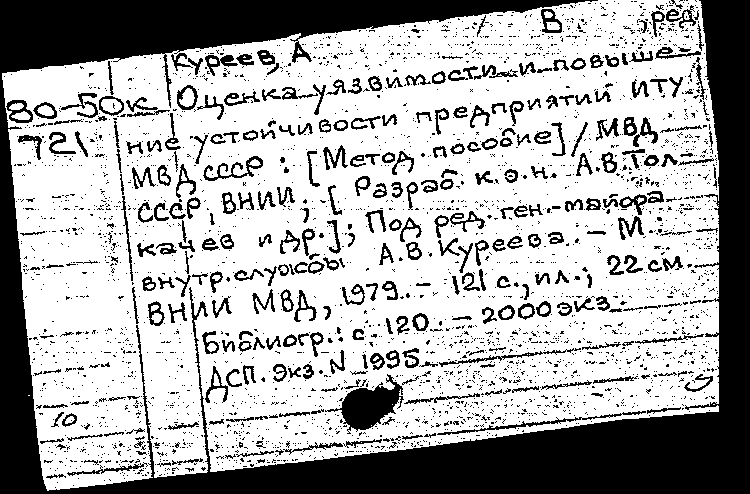 Куреев, А В ред.
80-50к Оценка уязвимости и повыше-
721 ние устойчивости предприятий ИТУ
МВД СССР : [Метод. пособие] / МВД
СССР, ВНИИ; [Разраб. к.э.н. А.В.Тол-
качев и др.]; Под ред. ген.-майора
внутр.службы А.В.Куреева. - М.:
ВНИИ МВД, 1979. - 121 с., ил.; 22 см.
Библиогр.: с. 120. - 2000 экз.
ДСП. Экз. N 1995.
10